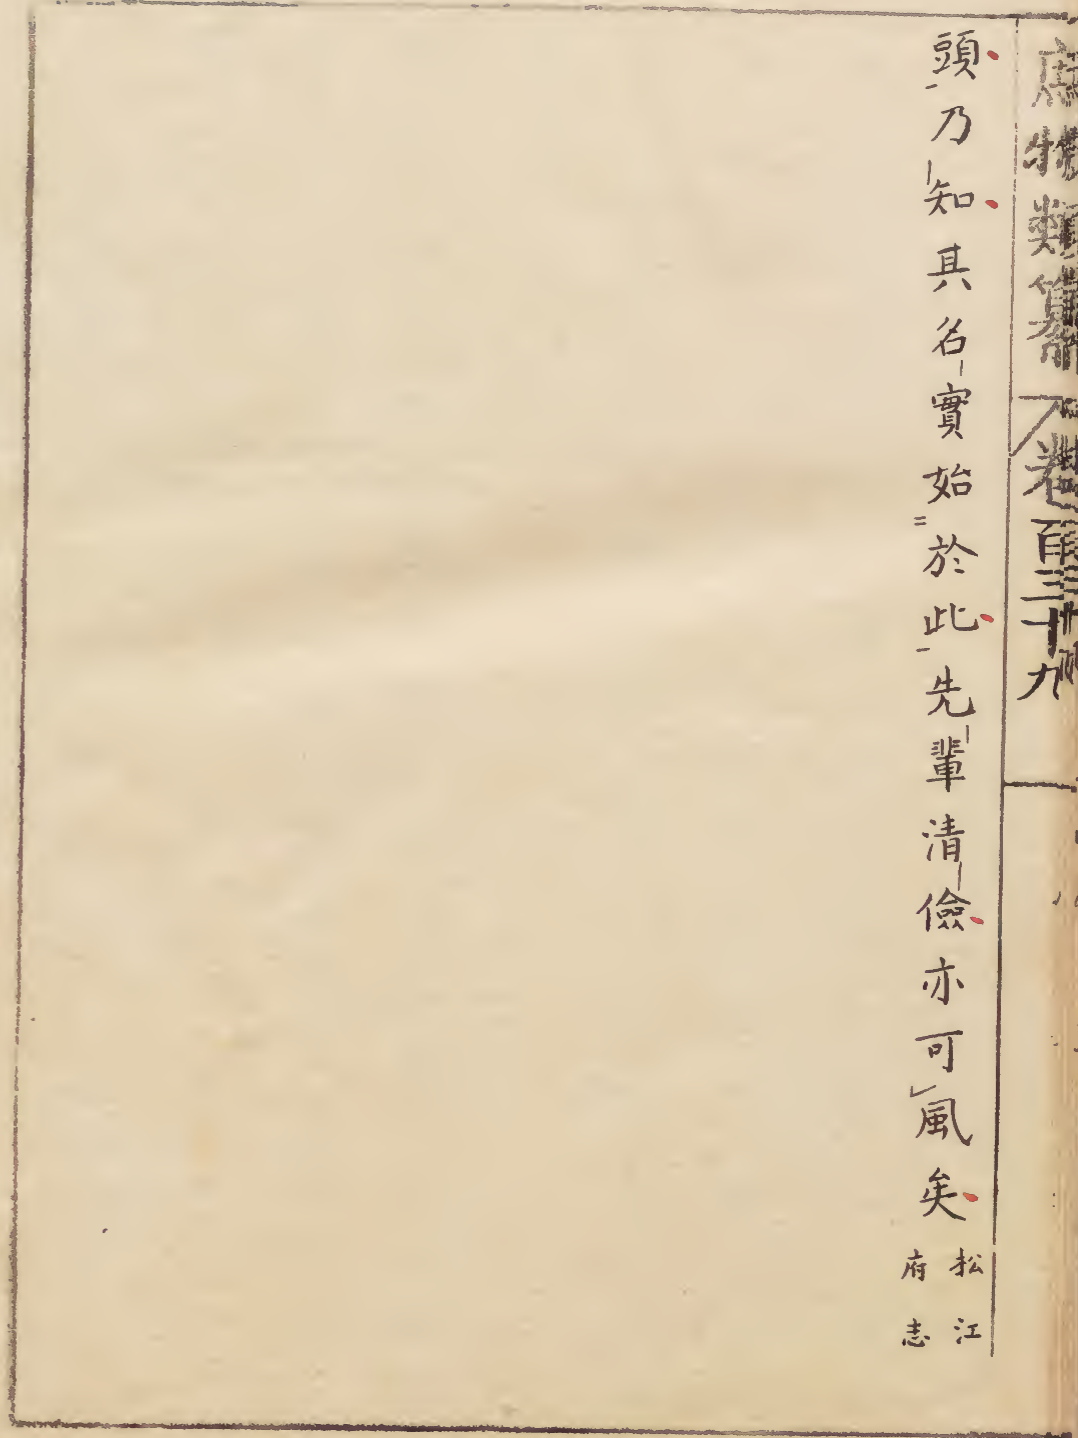 庶物類纂 卷百三十九
頭乃知其名實始於此先輩清儉亦可風矣
松江
府志